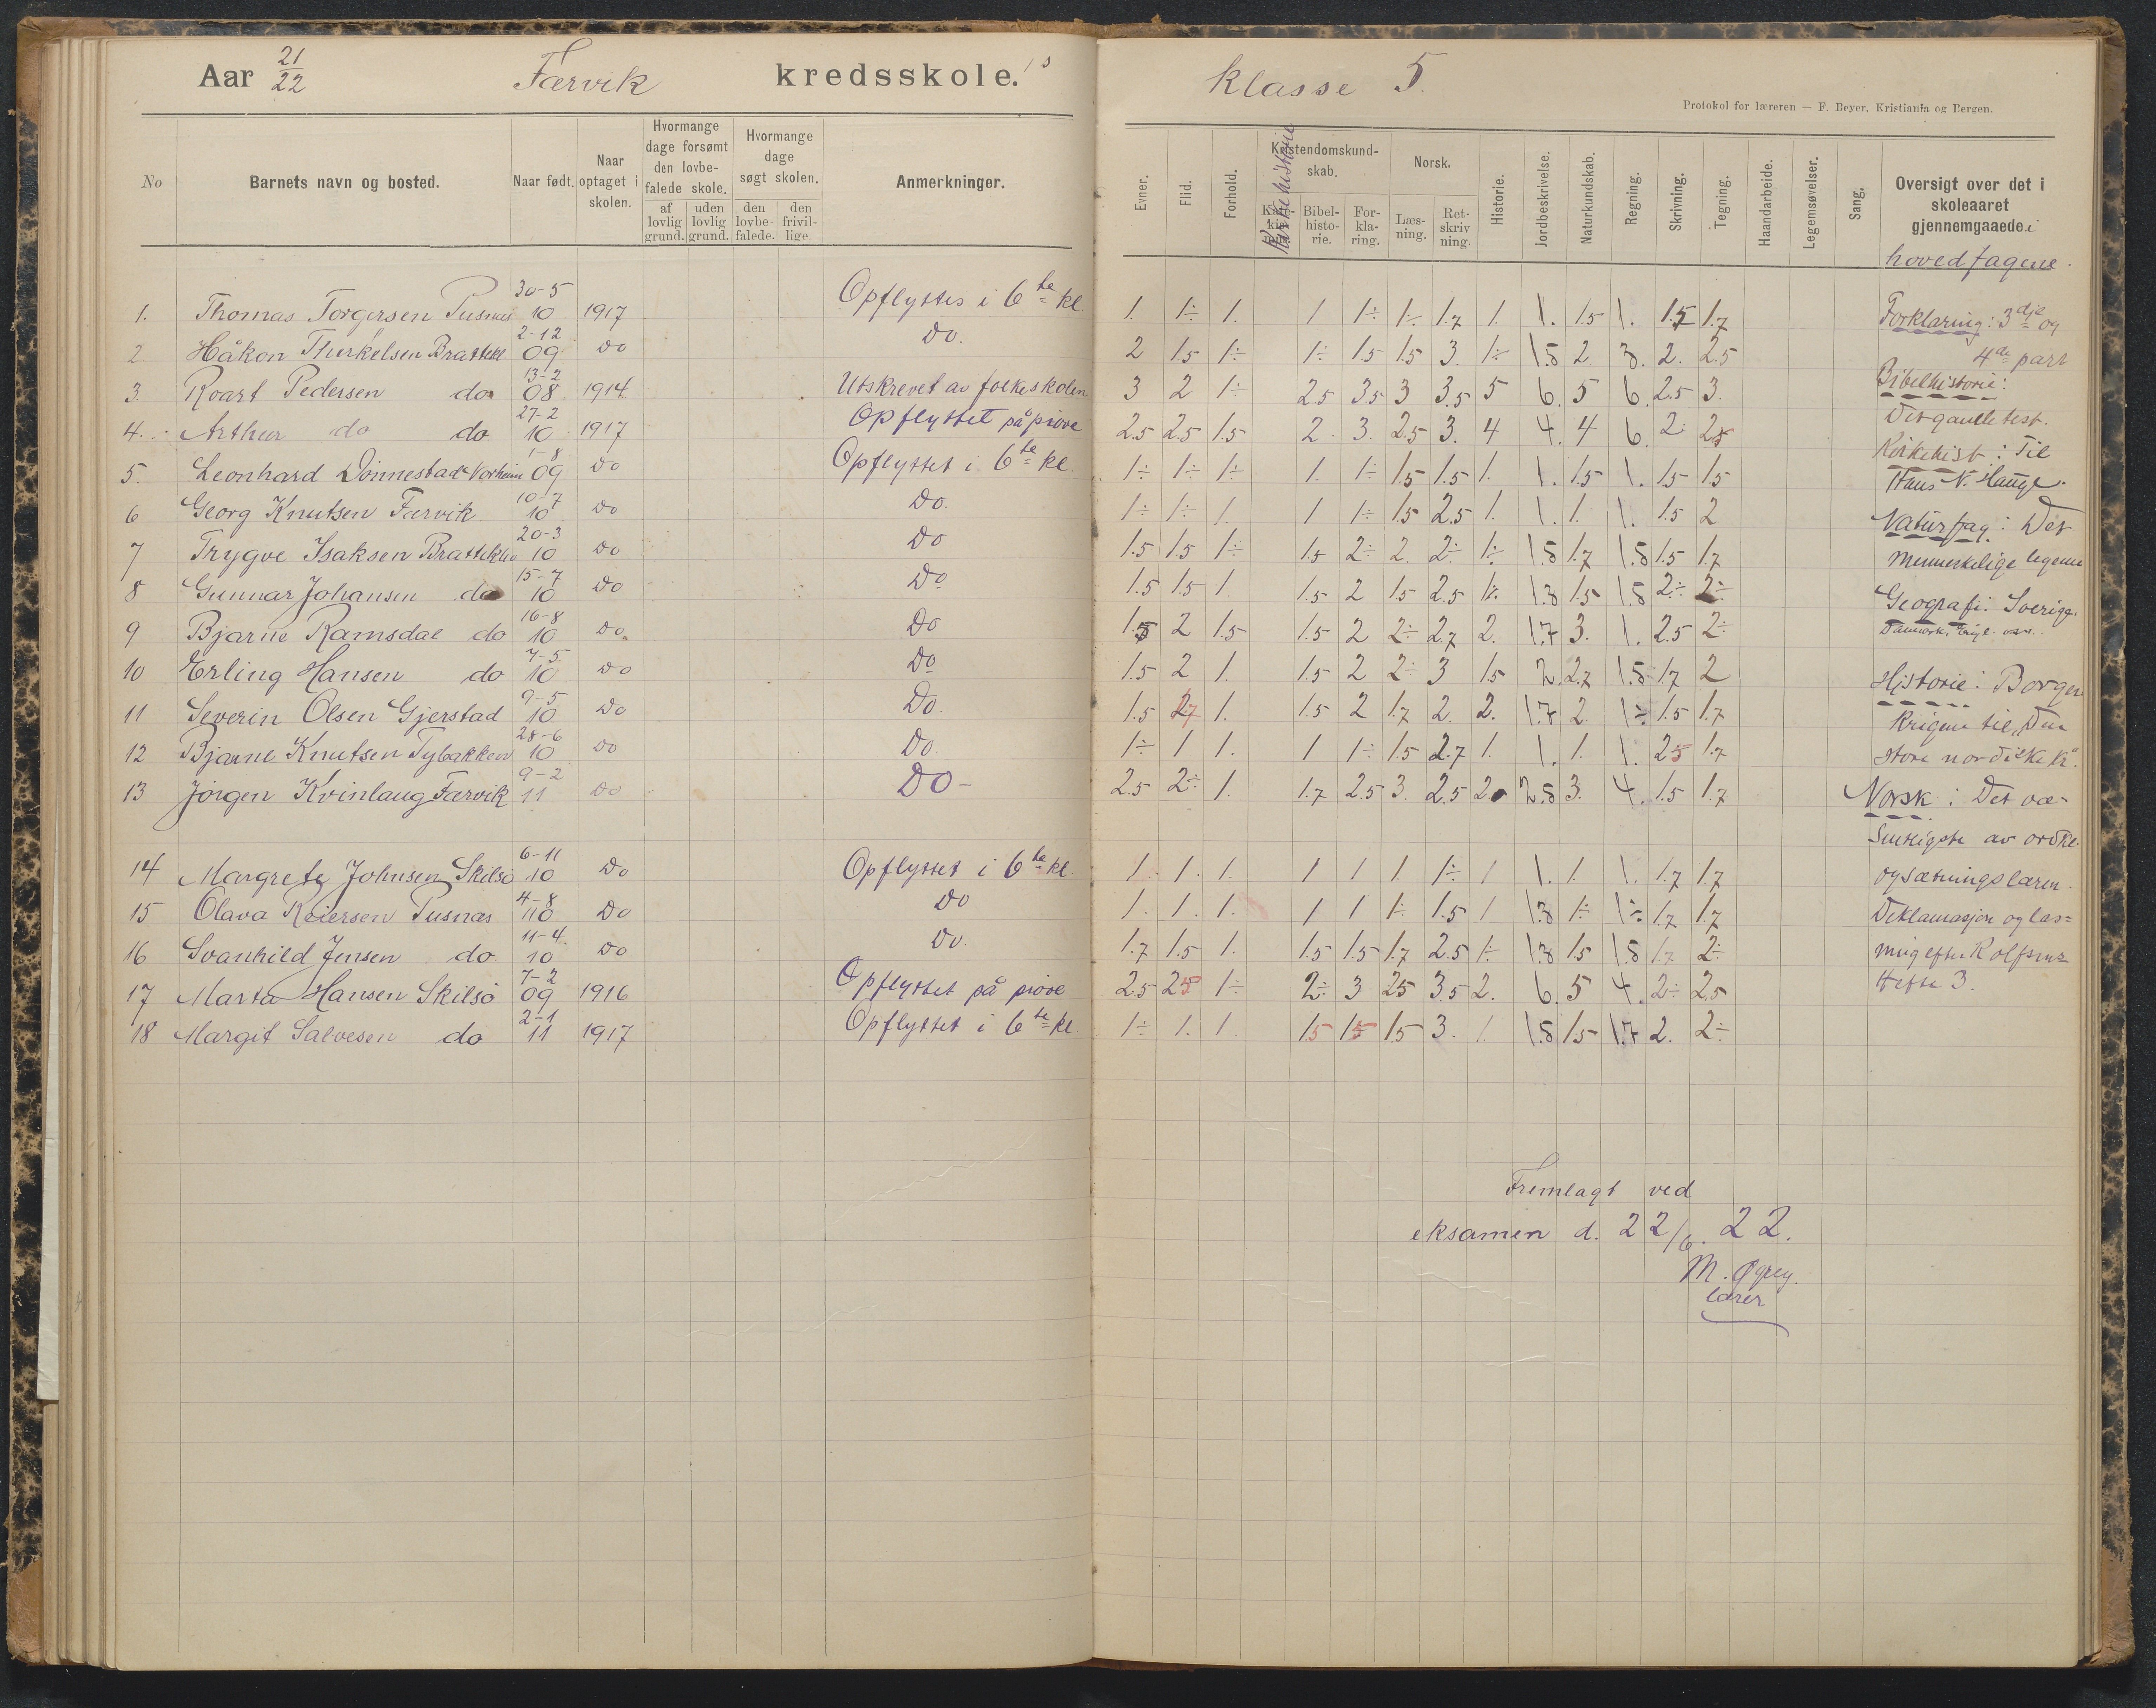 Aar 21/22 Færvik kredsskole.'s
No Barnets navn og bosted. Naar født. Naar optaget i skolen. Hvormange dage forsømt den lovbefalede skole. af lovlig grund. uden lovlig grund. Hvormange dage søgt skolen. den lovbefalede. den frivillige. Anmerkninger.
1. Thomas Torgersen Pusnes 30-5 10 1917 Opflyttes i 6te kl
2. Håkon Therkelsen Brattekl 2-12 09 Do Do.
3. Roart Pedersen do 13-2 08 1914 Utskrevet av folkeskolen
4. Arthur do do 27-2 10 1917 Opflyttet på prøve
5. Leonhard Dønnestad 1-8 09 Do Opflyttet i 6te kl.
6 Georg Knutsen Færvik 10-7 10 Do Do.
7 Trygve Isaksen Bratteklev 20-3 10 Do Do
8 Gunnar Johansen do 15-7 10 Do Do
9 Bjarne Ramsdal do 16-8 10 Do. Do
10 Erling Hansen do 7-5 10 Do Do
11 Severin Olsen Gjerstad 9-5 10 Do Do.
12 Bjarne Knutsen Tybakken 28-6 10 Do Do.
13 Jørgen Kvinlaug Færvik 9-2 11 Do Do-
14 Margrete Johnsen Skilsø 6-11 10 Do Opflyttet i 6te kl.
15 Olava Reiersen Pusnæs 4-8 10 Do Do
16 Svanhild Jensen do 11-4 10 Do Do.
17 Marta Hansen Skilsø 7-2 09 1916 Opflyttet på prøve
18 Margit Salvesen do 2-1 11 1917 Opflyttet i 6te kl
Klasse 5.
Protokol for læreren — F. Beyer, Kristiania og Bergen.
Evner. Flid. Forhold. Kristendomskundskab. Kirkehistorie Bibelhistorie. Forklaring. Norsk. Læsning. Retskrivning. Historie. Jordbeskrivelse. Naturkundskab. Regning. Skrivning. Tegning. Haandarbeide. Legemsøvelser. Sang. Oversigt over det i skoleaaret gjennemgaaede i
hovedfagene.
1. 1÷ 1. 1 1÷ 1÷ 1.7 1. 1. 1.5 1. 1.5 1.7
2 1.5 1÷ 1÷ 1.5 1.5 3. 1÷ 1.8 2 3. 2. 2.5
3 2 1÷ 2.5 3.5 3 3.5 5 6. 5 6. 2.5 3.
2.5 2.5 1.5 2. 3. 2.5 3. 4 4. 4 6. 2. 2.5
1÷ 1÷ 1÷ 1. 1÷ 1.5 1.5 1. 1. 1.5 1. 1.5 1.5
1÷ 1÷ 1 1 1÷ 1.5 2.5 1. 1. 1. 1. 1.5 2
1.5 1.5 1÷ 1.5 2÷ 2. 2÷ 1÷ 1.8 1.7 1.8 1.5 1.7
1.5 1.5 1. 1.5 2 1.5 2.5 1÷ 1.3 1.5 1.8 2÷ 2÷
1.5 2 1.5 1.5 2 2÷ 2.7 2. 1.7 3. 1. 2.5 2÷
1.5 2 1. 1.5 2 2÷ 3 1.5 2. 2.7 1.8 1.7 2
1.5 2.7 1. 1.5 2 1.7 2. 2. 1.7 2 1÷ 1.5 1.7
1÷ 1 1. 1 1÷ 1.5 2.7 1. 1. 1. 1. 2.5 1.7
2.5 2÷ 1. 1.7 2.5 3. 2.5 2. 2.8 3. 4. 1.5 1.7
1 1. 1. 1 1 1 1÷ 1 1. 1. 1. 1.7 1.7
1. 1. 1. 1 1 1÷ 1.5 1 1.3 1÷ 1÷ 1.7 1.7
1.7 1.5 1. 1.5 1.5 1.7 2.5 1÷ 1.3 1.5 1.8 1.7 2÷
2.5 2.5 1÷ 2÷ 3 2.5 3.5 2. 6. 5 4. 2÷ 2.5
1÷ 1. 1. 1.5 1.5 1.5 3. 1. 1.8 1.5 1.7 2. 2÷
Forklaring: 3dje og
4de part
Bibelhistorie:
Det gamle test.
Kirkehist: Til
Hans N. Hauge.
Naturfag: Det
menneskelige legeme
Geografi: Sverige,
Danmark, Engl. osv.
Historie: Borger
krigene til, Den
store nordiske k".
Norsk: Det væ-
sentligste av ordkl.
og sætningslæren.
Deklamasjon og læs=
ning efter Rolfsens
Hefte 3.
Fremlagt ved
eksamen d. 22/6. 22.
M.
lærer